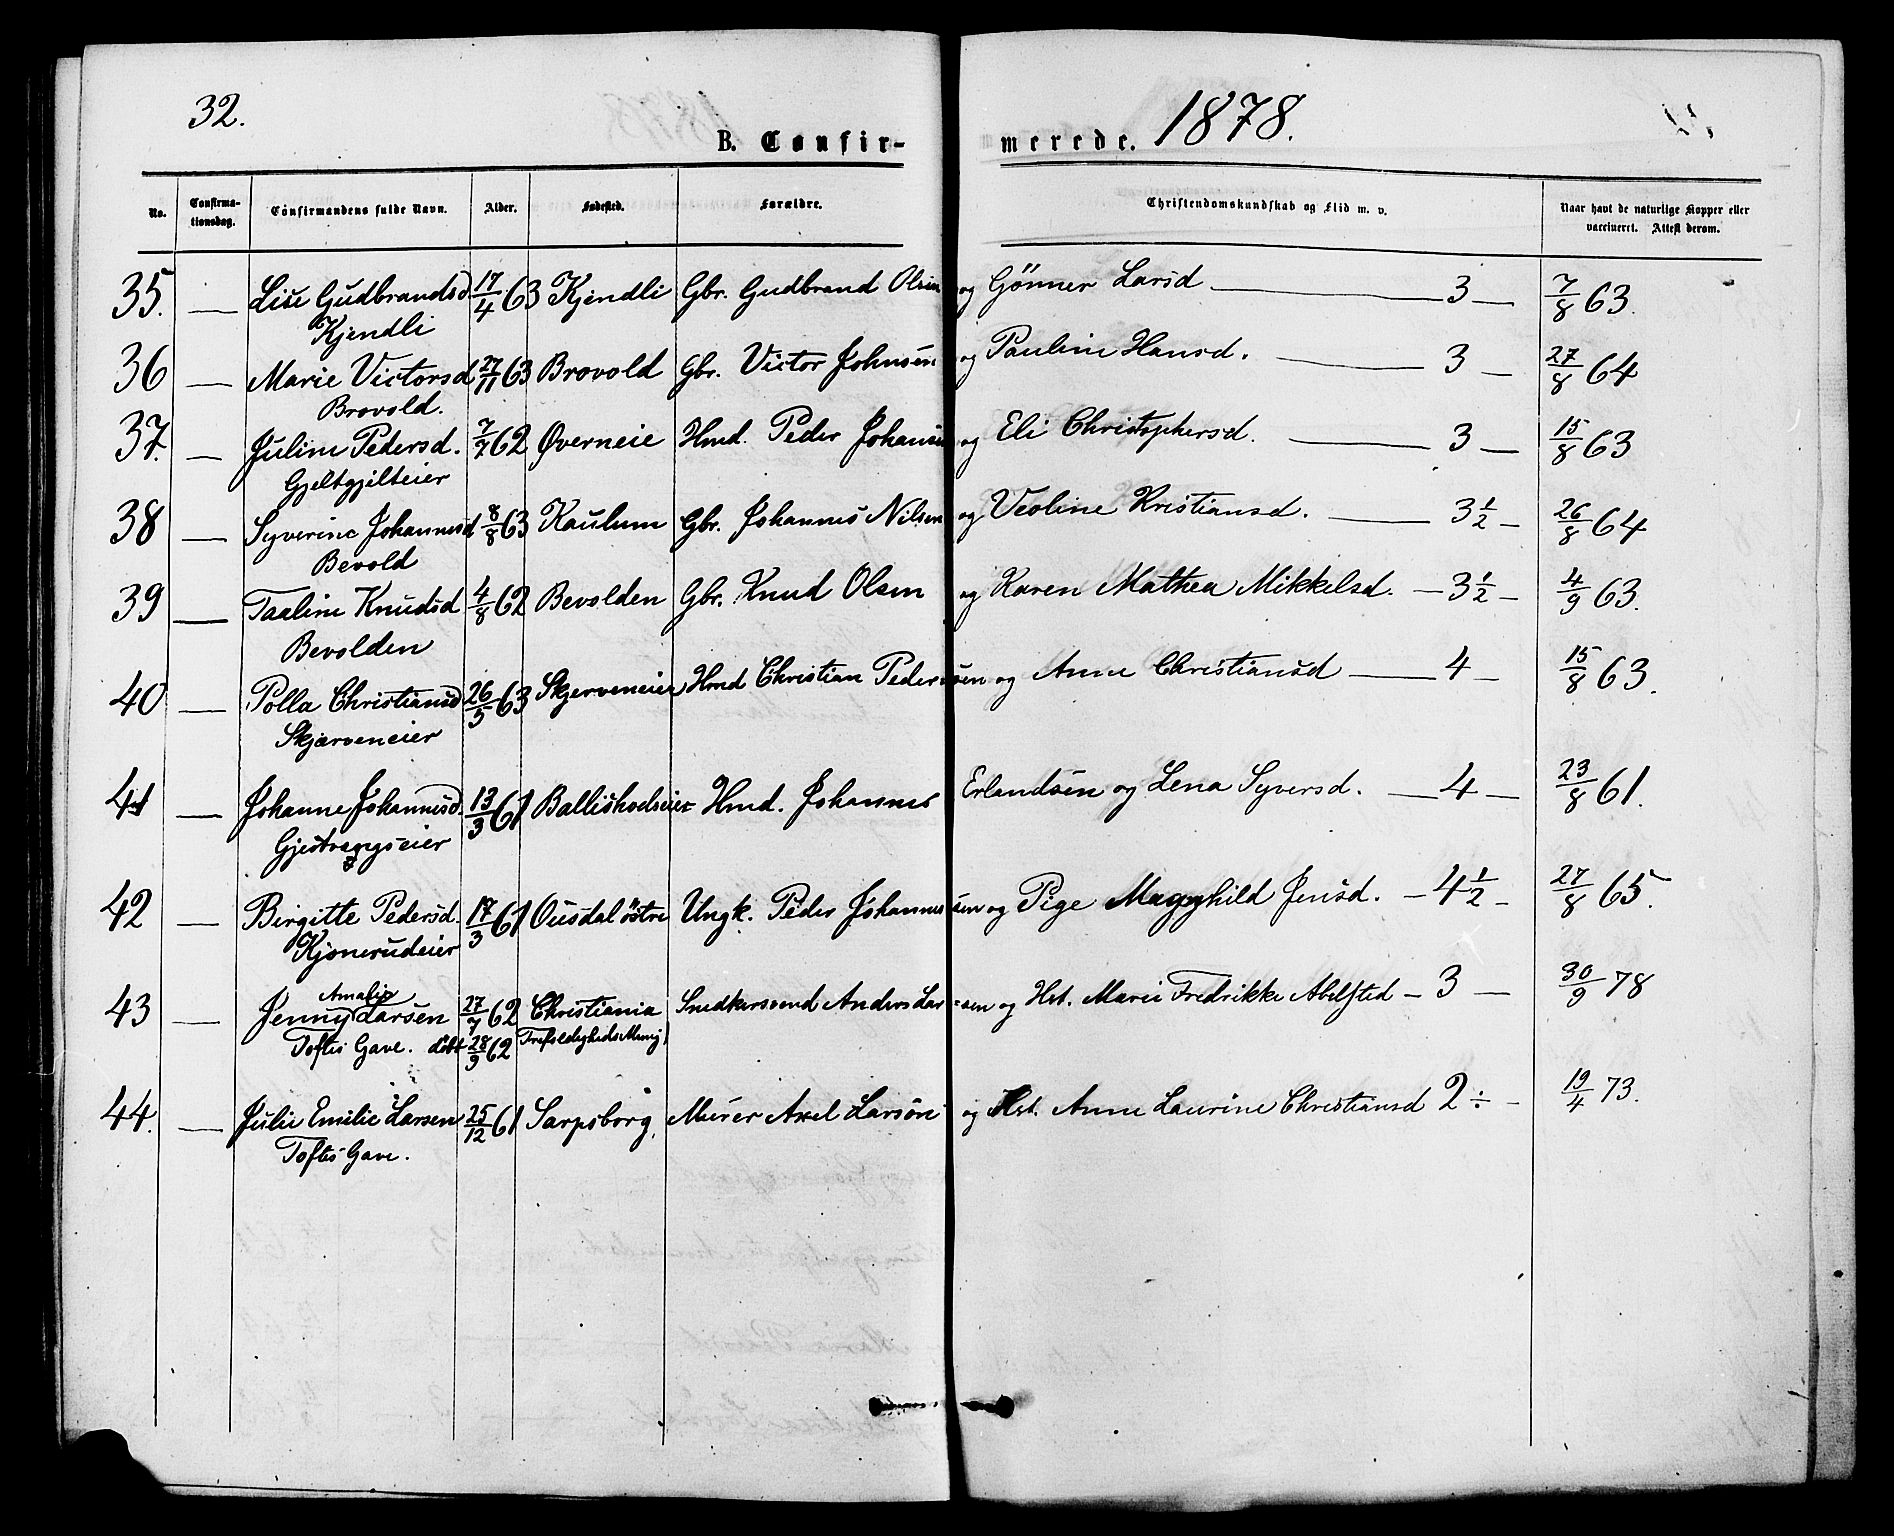 32.
B. Confirmerede. 1878.
No. Confirmationsdag. Confirmandens fulde Navn. Alder. Fødested. Forældre. Christendomskundskab og Flid m. v. Naar havt de naturlige Kopper eller vaccineret. Attest derom.
35. — Lise Gudbrandsd 17/4 63 Kjendli Gbr. Gudbrand Olsen og Gönner Larsd — 3 — 7/8 63.
Kjendli
36 — Marie Victorsd 27/11 63 Brovold Gbr. Victor Johnsen og Pauline Hansd. — 3 — 27/8 64
Brovold.
37. — Juline Pedersd. 7/7 62 Øverneie Hmd. Peder Johansen og Eli Christophersd. — 3 — 15/8 63
Gjeltgjilteier
38 — Syverine Johannesd 8/8 63 Kaulum Gbr. Johannes Nilsen og Veoline Kristiansd. — 3 1/2 — 26/8 64
Bevold
39 — Taaline Knudsd 4/8 62 Bevolden Gbr. Knud Olsen og Karen Mathea Mikkelsd. — 3 1/2 — 4/9 63.
Bevolden
40 — Polla Christiansd 26/5 63 Skjerveneier Hmd Christian Pedersen og Anne Christiansd — 4 — 15/8 63.
Skjærveneier
41 — Johanne Johannesd. 13/3 61 Ballisholseier Hmd. Johannes Erlandsen og Lena Syversd. — 4 — 23/8 61.
Gjestvangseier
42 — Birgitte Pedersd. 17/3 61 Ousdal östre Ungk. Peder Johannessen og Pige Magnhild Jensd. — 4 1/2 — 27/8 65.
Kjonerudeier
Amalie
43 — Jenny Larsen 27/7 62 Christiania Snedkersvend Anders Larsen og Hst. Marie Fredrikke Abelsted — 3 — 30/9 78
Toftes Gave. döbt 28/9 62 Trefoldigheds Menig)
44. — Julie Emilie Larsen 25/12 61 Sarpsborg, Murer Axel Larsen og Hst. Anne Laurine Christiansd 2 ÷ — 19/4 73.
Toftes Gave.